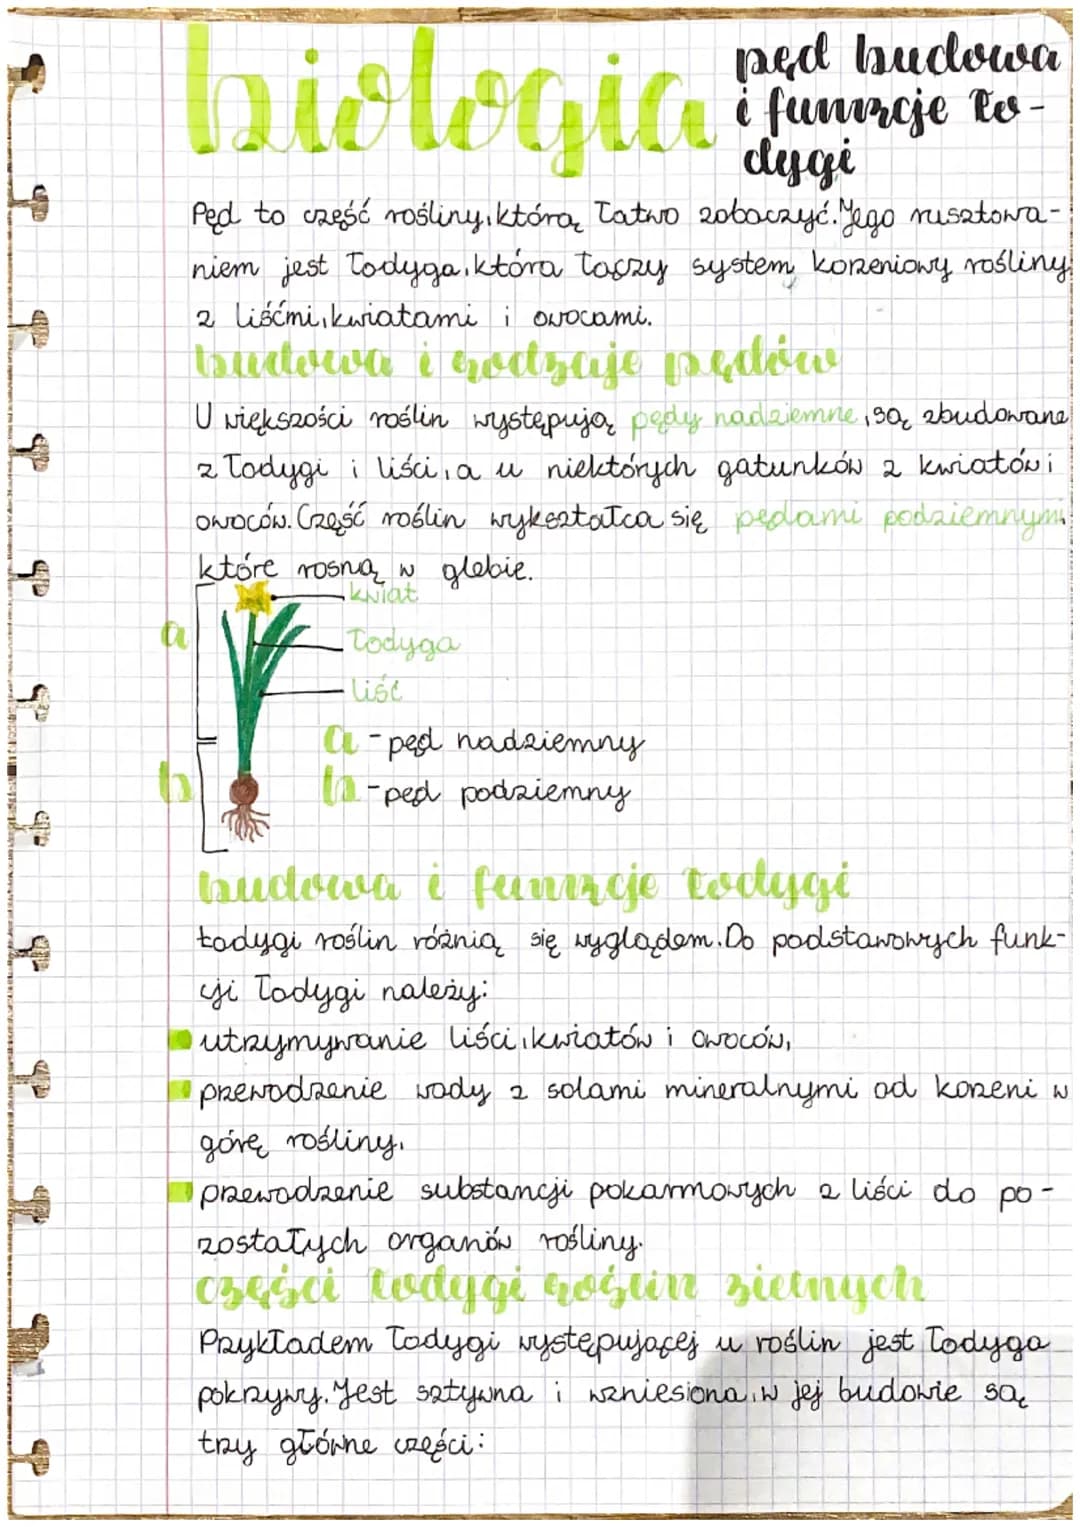 biologia
pęd budowa
i funkcje ło-
dygi
Pęd to część rośliny, którą łatwo zobaczyć. Jego rusztowa-
niem jest łodyga, która łączy system korzeniowy rośliny
z liśćmi, kwiatami i owocami.
budowa i rodzaje pędów
U większości roślin występują pędy nadziemne, są zbudowane
z łodygi i liści, a u niektórych gatunków z kwiatów i
owoców. Część roślin wykształca się pędami podziemnymi,
które rosną w glebie.
kwiat
a
łodyga
liść
a - pęd nadziemny
b
b - pęd podziemny
budowa i funkcje łodygi
Łodygi roślin różnią się wyglądem. Do podstawowych funk-
cji łodygi należy:
utrzymywanie liści, kwiatów i owoców,
przewodzenie wody z solami mineralnymi od korzeni w
górę rośliny,
przewodzenie substancji pokarmowych z liści do po-
zostałych organów rośliny.
części łodygi roślin zielnych
Przykładem łodygi występującej u roślin jest łodyga
pokrzywy. Jest sztywna i wzniesiona, w jej budowie są
trzy główne części: